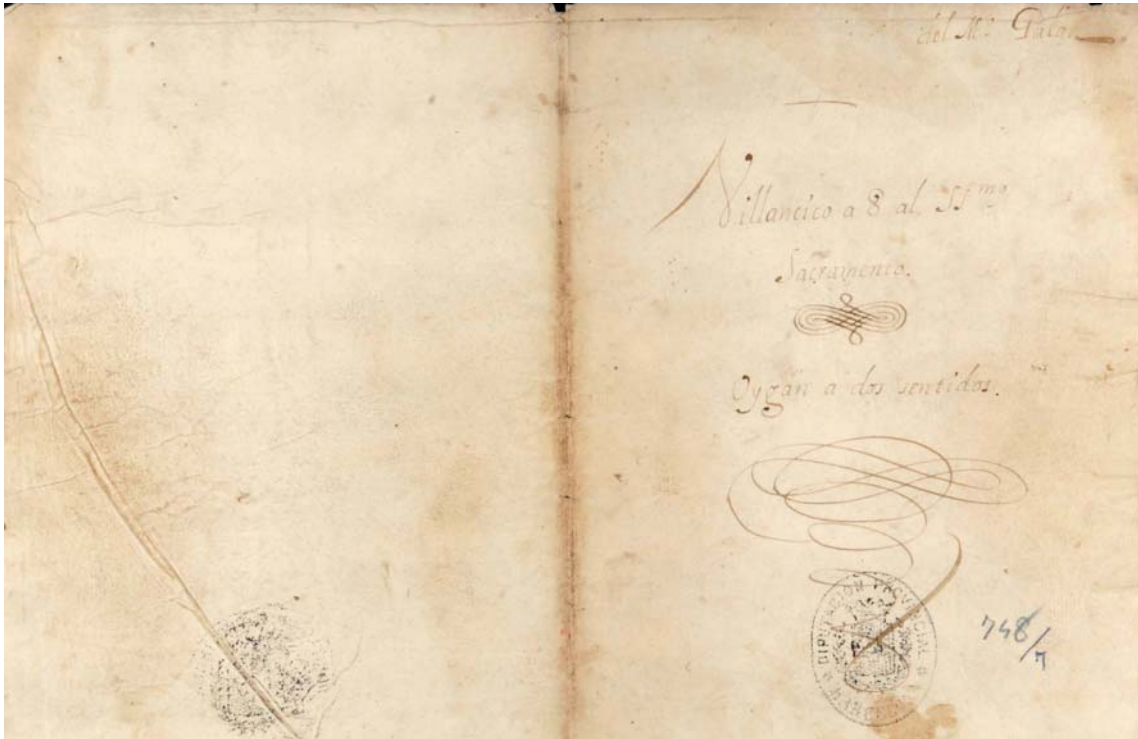 del Mº
Villancico a 8 al SSmo
Sacramento.
Oygan a dos sentidos.
DIPUTACION PROVINCIAL
748/7